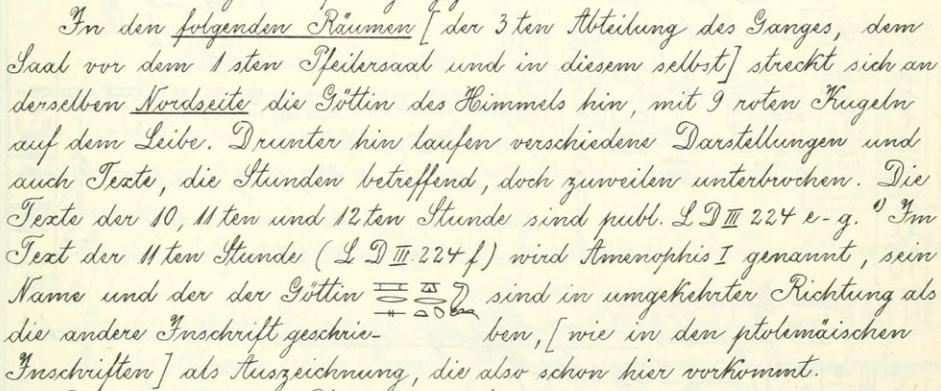 In den folgenden Räumen [der 3ten Abteilung des Ganges, dem
Saal vor dem 1sten Pfeilersaal und in diesem selbst] streckt sich an
derselben Nordseite die Göttin des Himmels hin, mit 9 roten Kugeln
auf dem Leibe. Drunter hin laufen verschiedene Darstellungen und
auch Texte, die Stunden betreffend, doch zuweilen unterbrochen. Die
Texte der 10, 11ten und 12ten Stunde sind publ. L D III 224 e-g. 1) Im
Text der 11ten Stunde (L D III. 224 f) wird Amenophis I genannt, sein
Name und der der Göttin sind in umgekehrter Richtung als
die andere Inschrift geschrie- ben, [wie in den ptolemäischen
Inschriften] als Auszeichnung, die also schon hier vorkommt.